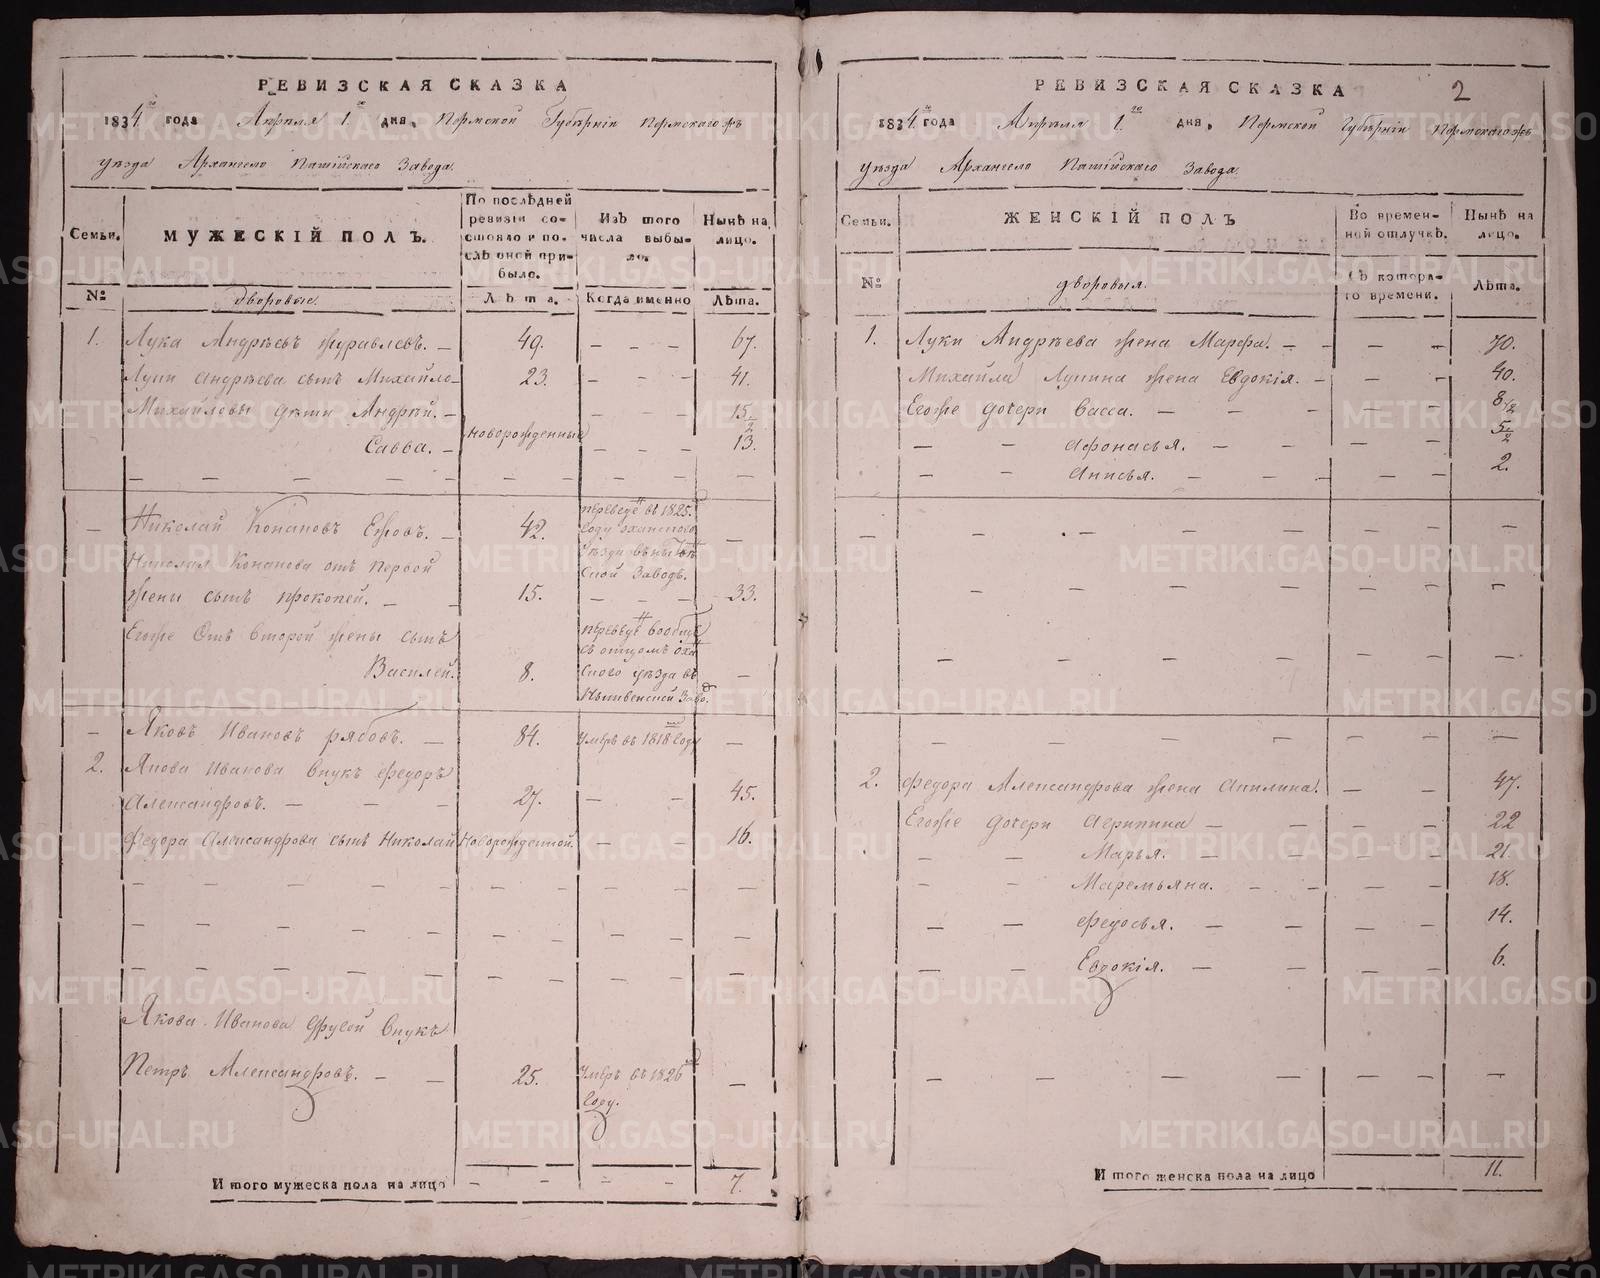 РЕВИЗСКАЯ СКАЗКА
1834го года Апреля 1го дня, Пермской Губѣрніи Пермскагожъ
уѣзда Архангело Пашійскаго Завода.
Семьи.
МУЖЕСКІЙ ПОЛЪ.
По послѣдней
ревизіи со-
стояло и по-
слѣ оной при-
было.
Изъ того
числа выбы-
ло.
Нынѣ на
лицо.
№
дворовые.
Лѣта.
Когда именно
Лѣта.
1. Лука Андрѣевъ Журавлевъ. 49. 67.
Луки Андрѣева сынъ Михайло 23. 41.
Михайловы дѣти Андрѣй. 15 1/2
новорожденные
Савва. 13.
Николай Конановъ Ежовъ. 42.
переведен въ 1825м
году
Николая Конанова отъ первой
жены сынъ прокопей. 15. 33.
Егоже Отъ второй жены сынъ
Василей. 8.
переведен вообще
съ отцомъ
уѣзда въ
Яковъ Ивановъ рябовъ. 84. Умеръ въ 1818м Году
2. Якова Иванова Внукъ Федоръ
Александровъ. 27. 45.
Федора Александрова сынъ Николай Новорожденной. 16.
Якова Иванова Другой Внукъ
Петръ Александровъ. 25. Умеръ въ 1826м
Году.
И того мужеска пола на лицо 7.
РЕВИЗСКАЯ СКАЗКА 2
1834го года Апреля 1го дня, Пермской Губѣрніи Пермскагожъ
уѣзда Архангело Пашійскаго Завода.
Семьи.
ЖЕНСКІЙ ПОЛЪ
Во времен-
ной отлучкѣ.
Нынѣ на
лицо.
№
дворовыя.
Съ котора-
го времени.
Лѣта.
1. Луки Андрѣева жена Марфа. 70.
Михайла Лукина жена Евдокія. 40.
Егоже дочери Васса. 8 1/2
Афонасья. 5 1/2
Анисья. 2.
2. Федора Александрова жена Акилина. 47.
Егоже дочери Агрипина 22
Марья. 21.
Маремьяна. 18.
Федосья. 14.
Евдокія. 6.
И того женска пола на лицо 11.
METRIKI.GASO-URAL.RU